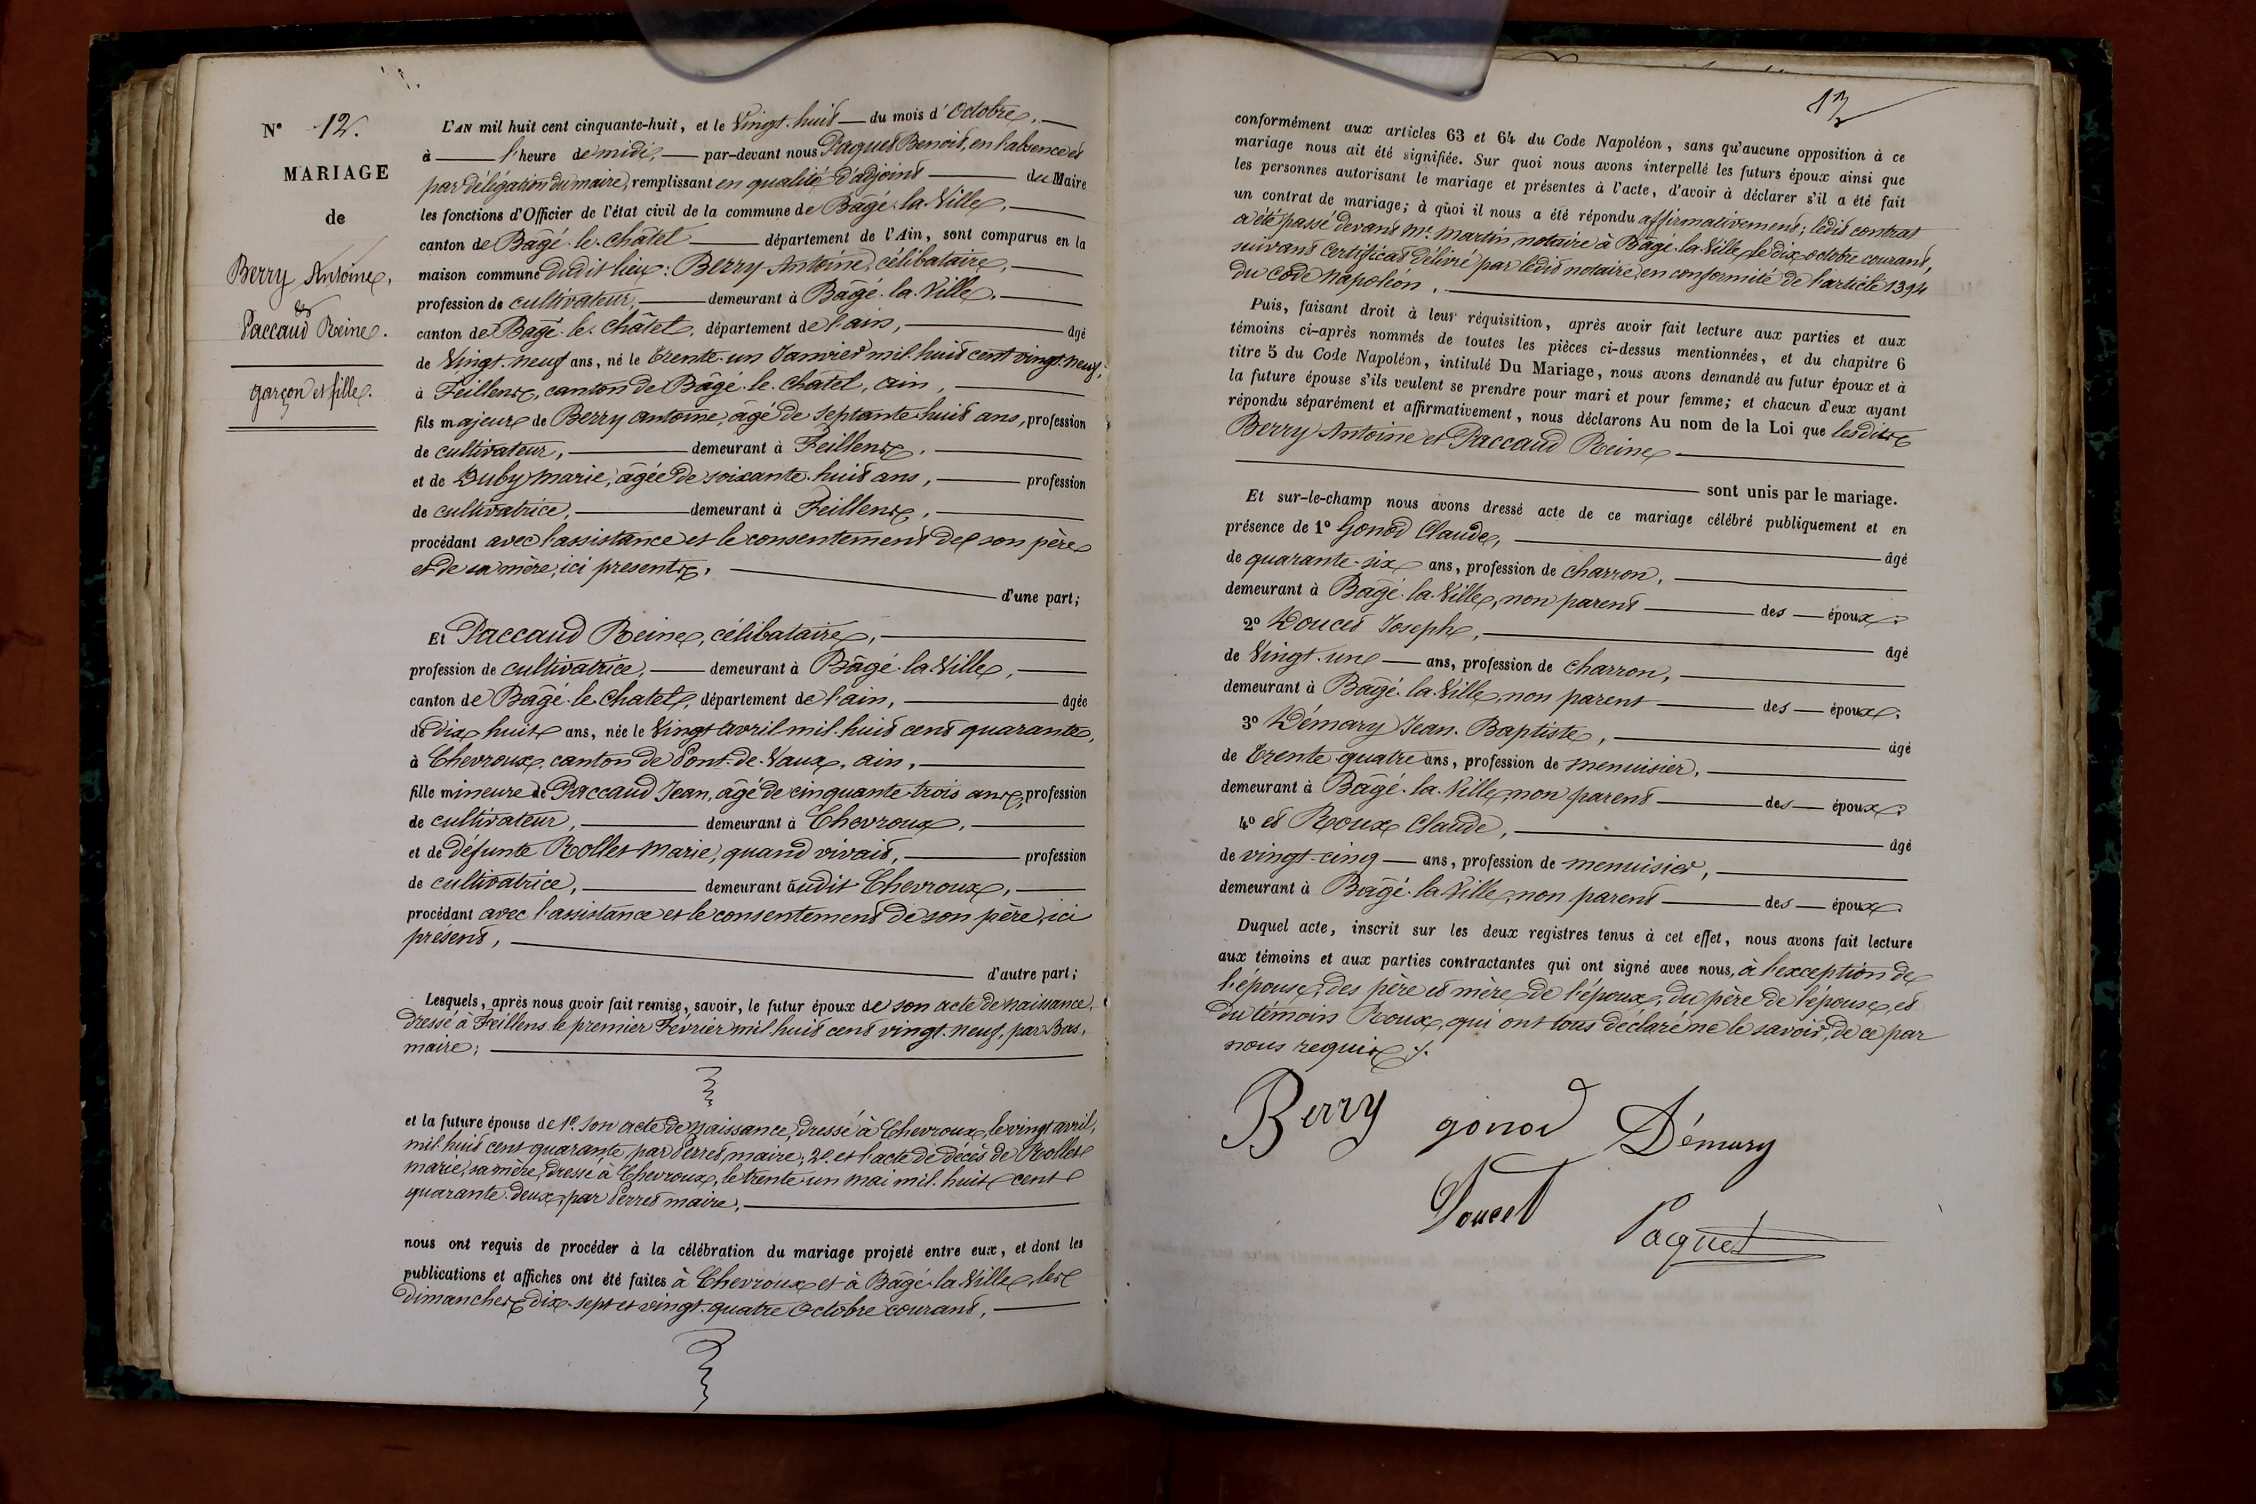 N° 12.
MARIAGE
de
Berry Antoine,
et
Paccaud Reine.
garçon et fille.
L'AN mil huit cent cinquante-huit, et le Vingt-huit du mois d'Octobre,
à l'heure de midi, par-devant nous Paquet Benoit, en l'absence et
par délégation du maire, remplissant en qualité d'adjoint du Maire
les fonctions d'Officier de l'état civil de la commune de Bâgé-la-Ville,
canton de Bâgé-le-Châtel département de l'Ain, sont comparus en la
maison commune dudit lieu : Berry Antoine, célibataire,
profession de cultivateur, demeurant à Bâgé-la-Ville,
canton de Bâgé-le-Châtel, département de l'ain, âgé
de Vingt-neuf ans, né le trente-un Janvier mil-huit cent vingt-neuf,
à Feillens, canton de Bâgé-le-Châtel, ain,
fils majeur de Berry antoine, âgé de septante-huit ans, profession
de cultivateur, demeurant à Feillens,
et de Buby marie, âgée de soixante-huit ans, profession
de cultivatrice, demeurant à Feillens,
procédant avec l'assistance et le consentement de son père
et de sa mère, ici presents,
d'une part ;
Et Paccaud Reine, célibataire,
profession de cultivatrice, demeurant à Bâgé-la-Ville,
canton de Bâgé-le-Chatel, département de l'ain, âgée
de dix huit ans, née le Vingt avril mil-huit cent quarante,
à Chevroux, canton de Pont-de-Vaux, ain,
fille mineure de Paccaud Jean, âgé de cinquante-trois ans, profession
de cultivateur, demeurant à Chevroux,
et de défunte Rollet Marie, quand vivait, profession
de cultivatrice, demeurant audit Chevroux,
procédant avec l'assistance et le consentement de son père, ici
présent,
d'autre part ;
Lesquels, après nous avoir fait remise, savoir, le futur époux de son acte de naissance,
dressé à Feillens le premier Février mil huit cent vingt-neuf, par Bas,
maire ;
et la future épouse de 1° son acte de naissance, dressé à Chevroux, le vingt avril,
mil-huit cent quarante, par Perret, maire ; 2° et l'acte de décès de Rollet
marie, sa mère, dressé à Chevroux, le trente-un mai mil-huit cent
quarante-deux, par Perret maire,
nous ont requis de procéder à la célébration du mariage projeté entre eux, et dont les
publications et affiches ont été faites à Chevroux et à Bâgé-la-Ville, les
dimanches dix-sept et vingt-quatre Octobre courant,
13
conformément aux articles 63 et 64 du Code Napoléon, sans qu'aucune opposition à ce
mariage nous ait été signifiée. Sur quoi nous avons interpellé les futurs époux ainsi que
les personnes autorisant le mariage et présentes à l'acte, d'avoir à déclarer s'il a été fait
un contrat de mariage ; à quoi il nous a été répondu affirmativement ; ledit contrat
a été passé devant Mr. Martin, notaire à Bâgé-la-Ville, le dix octobre courant,
suivant certificat délivré par ledit notaire, en conformité de l'article 1394
du code Napoléon.
Puis, faisant droit à leur réquisition, après avoir fait lecture aux parties et aux
témoins ci-après nommés de toutes les pièces ci-dessus mentionnées, et du chapitre 6
titre 5 du Code Napoléon, intitulé Du Mariage, nous avons demandé au futur époux et à
la future épouse s'ils veulent se prendre pour mari et pour femme ; et chacun d'eux ayant
répondu séparément et affirmativement, nous déclarons Au nom de la Loi que lesdits
Berry Antoine et Paccaud Reine
sont unis par le mariage.
Et sur-le-champ nous avons dressé acte de ce mariage célébré publiquement et en
présence de 1° Gonod Claude, âgé
de quarante-six ans, profession de charron,
demeurant à Bâgé-la-Ville, non parent des époux.
2° Doucet Joseph, âgé
de Vingt-un ans, profession de charron,
demeurant à Bâgé-la-Ville, non parent des époux.
3° Démary Jean-Baptiste, âgé
de trente-quatre ans, profession de menuisier,
demeurant à Bâgé-la-Ville, non parent des époux.
4° et Roux Claude, âgé
de vingt-cinq ans, profession de menuisier,
demeurant à Bâgé-la-Ville, non parent des époux.
Duquel acte, inscrit sur les deux registres tenus à cet effet, nous avons fait lecture
aux témoins et aux parties contractantes qui ont signé avec nous, à l'exception de
l'épouse, des père et mère de l'époux, du père de l'épouse, et
du témoin Roux, qui ont tous déclaré ne le savoir, de ce par
nous requis.
Berry gonod Démary
Doucet Paquet